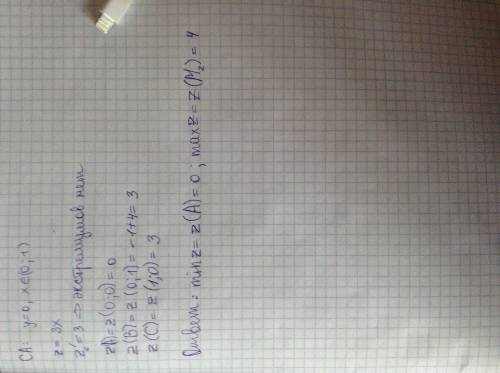 CA: y=0; x∈(0;1)
z=3x
z'ₓ=3 ⇒ экстремумов нет
z(A)=z(0;0)=0
z(B)=z(0;1)=-1+4=3
z(C)=z(1;0)=3
Ответ: min z=z(A)=0; max z=z(M₂)=4